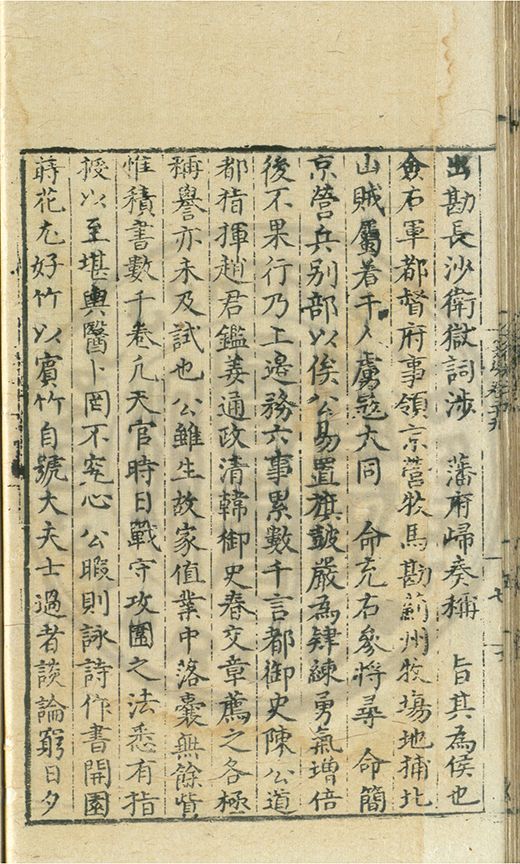 出勘長沙衛獄詞涉 藩府歸奏稱 旨其為侯也
僉右軍都督府事領京營牧馬勘薊州牧場地捕北
山賊屬者千人虜寇大同 命充右參將尋 命簡
京營兵別部以俟公易置旗鼓嚴為肄練勇氣增倍
後不果行乃上邊務六事累數千言都御史陳公道
都指揮趙君鑑姜通政清韓御史春交章薦之各極
稱譽亦未及試也公雖生故家值業中落囊無餘貲
惟積書數千卷凡天官時日戰守攻圍之法悉有指
授以至堪輿醫卜罔不究心公暇則詠詩作書開園
蒔花尤好竹以賓竹自號大夫士過者談論窮日夕
七